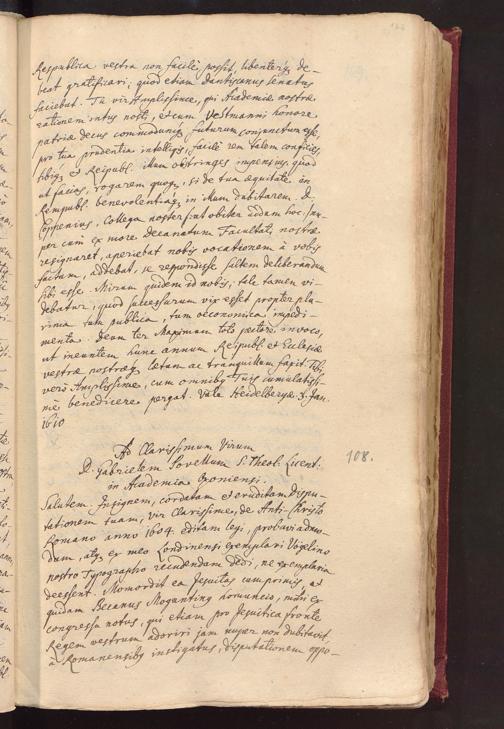 Respublica vestra non facilè possit, libenterq; de-
beat gratificari, quod etiam Dantiscanus Senatus
faciebat. Tu vir Amplissime, qui Academiæ nostræ
rationem intus nosti, et cum Vestmanni honore
patriæ decus commodumq; futurum conjunctum esse,
pro tua prudentia intelligis, facile rem talem conficies,
tibiq; et Reipubl. illum obstringes impensius, quod
ut facias, rogarem quoq;, si de tua æquitate in
Rempubl. benevolentiaq; in illum dubitarem. D.
Coppenius, Collega noster, obiter dum hoc
per cum ex more decanatum Facultatis nostræ
resignaret, aperiebat nobis vocationem à vobis
factam, addebat, se respondisse saltem deliberandum
sibi esse. Mirum quidem id nobis; tale tamen vi-
debatur, quod successurum vix esset propter plu-
rima tum publica, tum oeconomica impedi-
menta. Deum ter Maximum toto pectore invoco,
ut ineuntem hunc annum Reipubl. et Ecclesiæ
vestræ nostræq; lætum ac tranquillum faxit. Tibi
verò Amplissime, cum omnibq Tuis cumulatissi-
mè benedicere pergat. Vale Heidelbergæ Jan.
1610
Ad Clarissimum Virum
D. Gabrielem Povellum S. Theol. Licent.
in Academia Oxoniensi.
108.
Salutem. Insignem, cordatam et eruditam Dispu-
tationem tuam, vir Clarissime, de Anti-Christo
Romano anno 1604. editam legi, probavi
dum, atq; ex meo Londinensi exemplari Vögelino
nostro Typographo recudendam dedi, ne exemplaria
deessent. Momordit ea Jesuitas cumprimis at
quidam Becanus Moguntinq homuncio, mihi ex
congressu notus, qui etiam pro Jesuitica fronte
Regem vestrum adoriri jam nuper non dubitavit,
à Romanensibq instigatus, disputationem oppo-